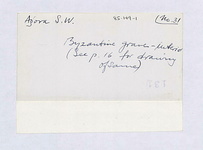 Agora S.W. 85.209.1 (No. 3)
Byzantine grave-
(See p. 16 for drawing
of same)